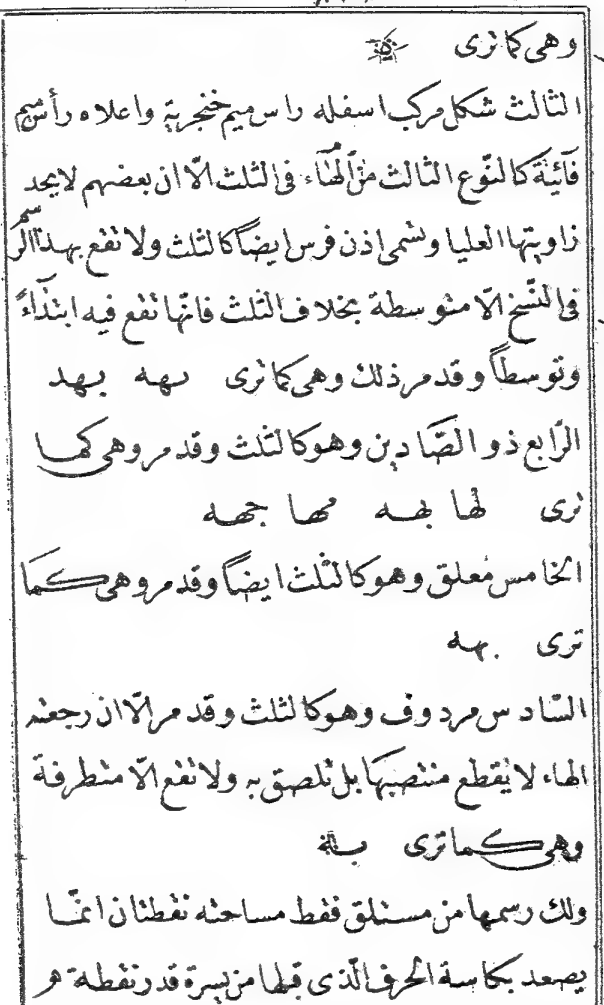 وهى كما ترى ه
الثالث شكل مركب اسفله راس ميم خنجرية واعلاه رأس ميم
فائية كالنّوع الثالث من الهاء فى الثلث الّا ان بعضهم لا يحد
زاويتها العليا وتسمى اذن فرس ايضاً كالثلث ولا تقع بهذا الرسم
فى النّسخ الّا متوسطة بخلاف الثلث فانّها تقع فيه ابتداءً
وتوسطاً وقد مر ذلك وهى كما ترى بهه بهد
الرّابع ذو الصّادين وهو كالثلث وقد مر وهى كما
ترى لها بهه مها جهه
الخامس معلق وهو كالثلث ايضاً وقد مر وهى كما
ترى بهه
السّادس مردوف وهو كالثلث وقد مر الّا ان رجعته
الهاء لا يقطع منتصبها بل تلصق به ولا تقع الّا متطرفة
وهى كما ترى به
ولك رسمها من مستلق فقط مساحته نقطتان انمّا
يصعد بكاسة الحرف الّذى قبلها من يسرة قدر نقطة هو